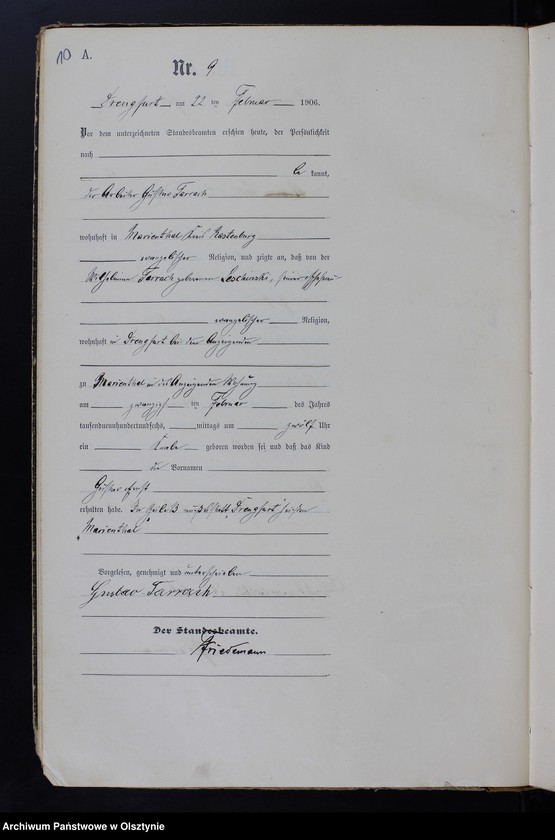 10 A.
Nr. 9
Drengfurt am 22 ten Februar 1906.
Vor dem unterzeichneten Standesbeamten erschien heute, der Persönlichkeit
nach
be kannt,
der Arbeiter Gustav Tarrach
wohnhaft in Marienthal Kreis Rastenburg
evangelischer Religion, und zeigte an, daß von der
Wilhelmine Tarrach geborenen Leschinski, seiner Ehefrau
evangelischer Religion,
wohnhaft in Drengfurt bei dem Anzeigenden
zu Marienthal in des Anzeigenden Wohnung
am zwanzig ten Februar des Jahres
tausendneunhundertundsechs, mittags um zwölf Uhr
ein Knabe geboren worden sei und daß das Kind
die Vornamen
Gustav Ernst
erhalten habe. Im Geleß muß es statt „Drengfurt" heißen
„Marienthal"
Vorgelesen, genehmigt und unterschrieben
Gustav Tarrach
Der Standesbeamte.
Friedemann
Archiwum Państwowe w Olsztynie